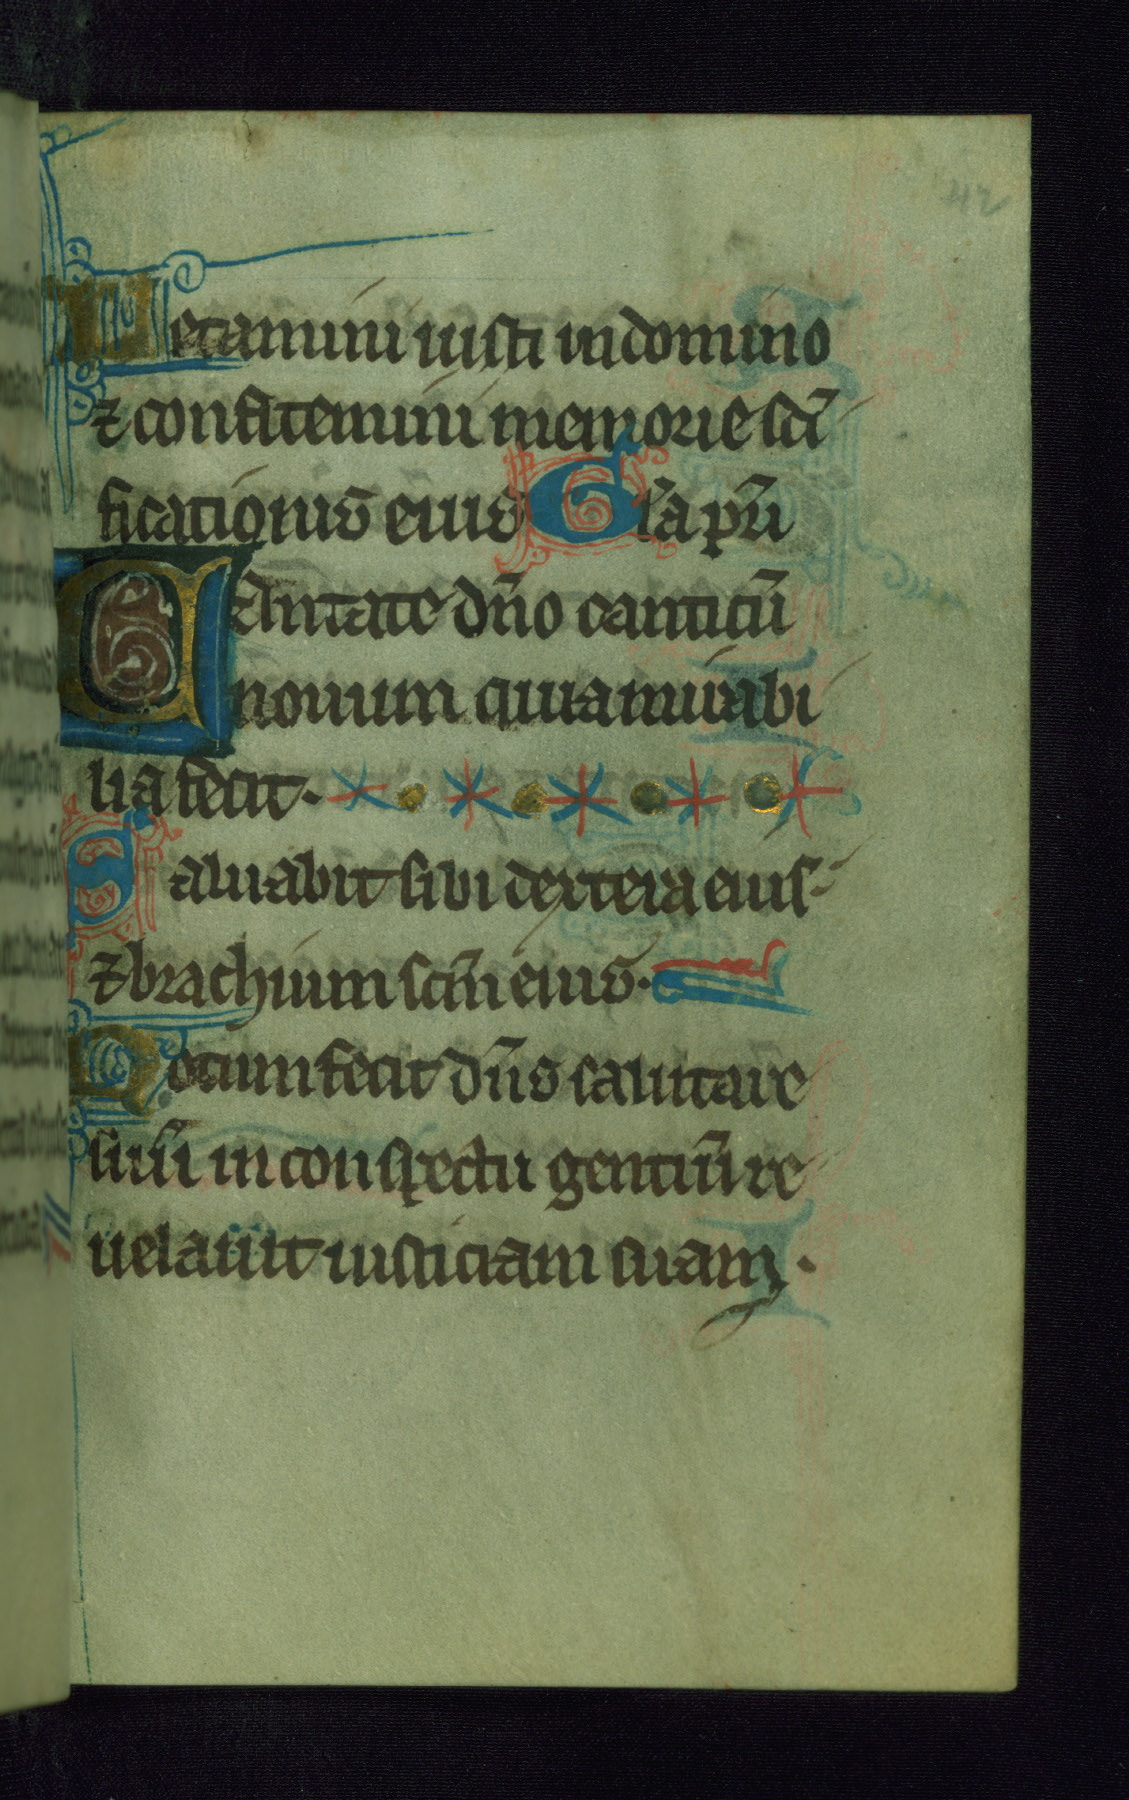 42
Letamini iusti in domino
⁊ confitemini memorie scī
ficationis eius Gl̄a pr̄i
CAntate dn̄o canticū
nouum quia mirabi
lia fecit·
Saluabit sibi dextera eius
⁊ brachium scm̄ eius·
Notum fecit dn̄s salutare
suū in conspectu gentiū re
uelauit iusticiam suam·